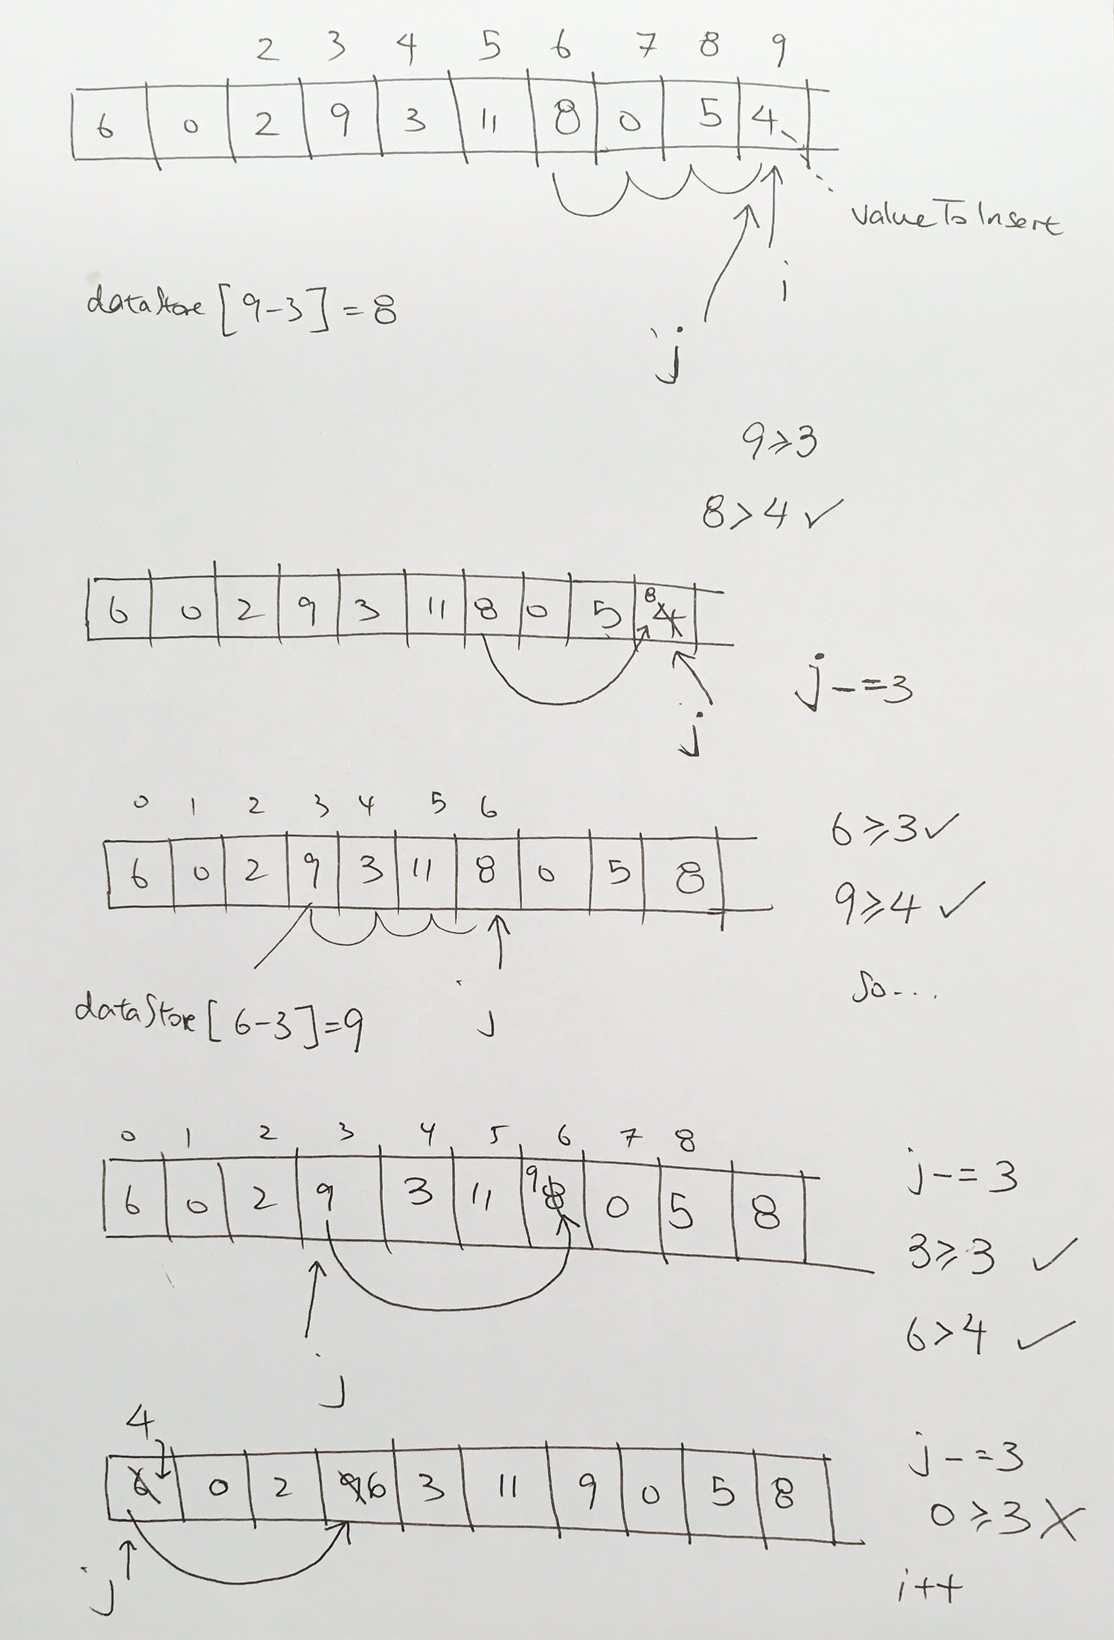 2 3 4 5 6 7 8 9
6 0 2 9 3 11 8 0 5 4
valueToInsert
i
dataStore [9-3] = 8
j
9≥3
8>4 ✓
6 0 2 9 3 11 8 0 5 8 4
j-=3
j
0 1 2 3 4 5 6
6 0 2 9 3 11 8 0 5 8
6≥3 ✓
9≥4 ✓
So...
dataStore [6-3]=9
j
0 1 2 3 4 5 6 7 8
6 0 2 9 3 11 9 8 0 5 8
j-=3
3≥3 ✓
6>4 ✓
j
4
6 0 2 9 6 3 11 9 0 5 8
j-=3
0≥3 X
j
i++